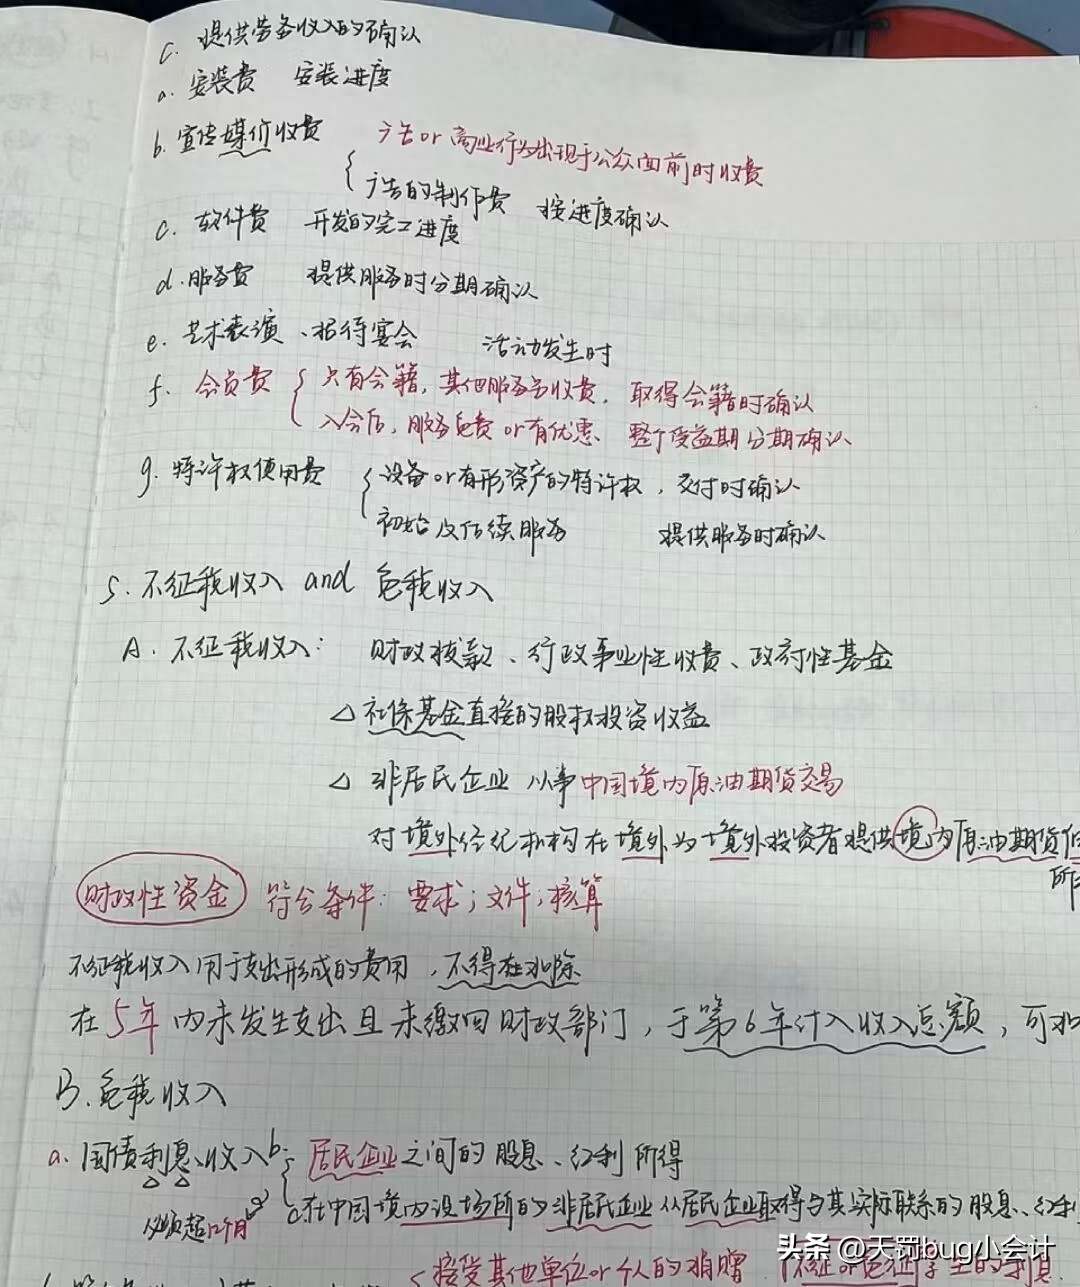 C. 提供劳务收入的确认
a. 安装费 安装进度
b. 宣传媒价收费 广告or商业行为出现于公众面前时收费
广告的制作费 按进度确认
c. 软件费 开发的完工进度
d. 服务费 提供服务时分期确认
e. 艺术表演、招待宴会 活动发生时
f. 会员费 只有会籍，其他服务另收费，取得会籍时确认
入会后，服务免费or有优惠 整个受益期分期确认
g. 特许权使用费 设备or有形资产的特许权，交付时确认
初始及后续服务 提供服务时确认
5. 不征税收入 and 免税收入
A. 不征税收入： 财政拨款、行政事业性收费、政府性基金
△ 社保基金直接的股权投资收益
△ 非居民企业 从事中国境内原油期货交易
对境外经纪机构在境外为境外投资者提供境内原油期货
所
财政性资金 符合条件：要求；文件；核算
不征税收入用于支出形成的费用，不得在扣除
在5年内未发生支出且未缴回财政部门，于第6年计入收入总额，可扣
B. 免税收入
a. 国债利息收入 b. 居民企业之间的股息、红利所得
必须超12个月 在中国境内设场所的非居民企业从居民企业取得与其实际联系的股息、红利
接受其他单位or个人的捐赠
头条 @天罚bug小会计